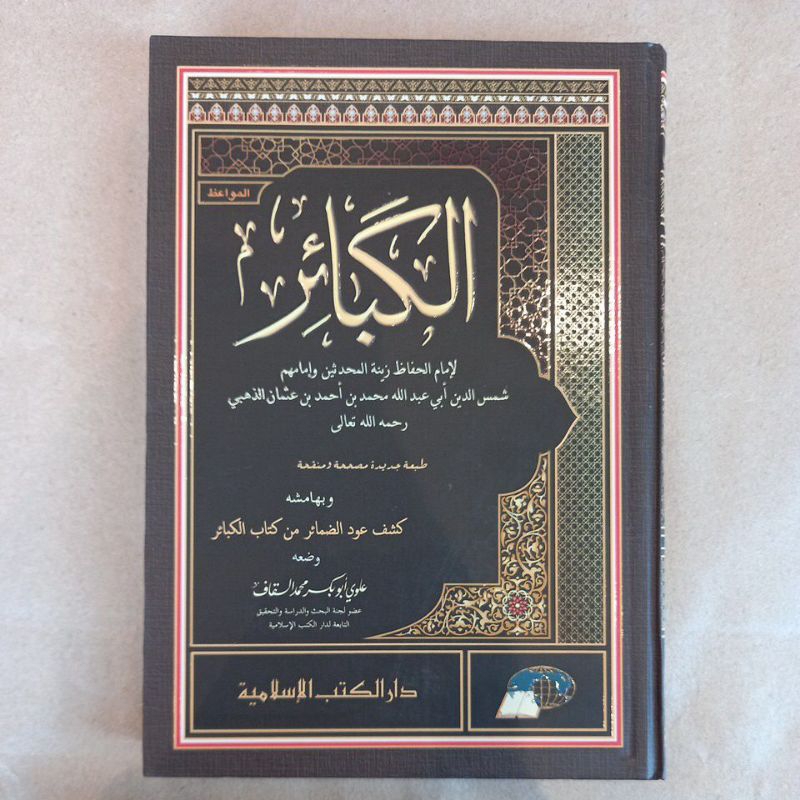 المواعظ
الكَبَائِر
لإمام الحفاظ زينة المحدثين وإمامهم
شمس الدين أبي عبد الله محمد بن أحمد بن عثمان الذهبي
رحمه الله تعالى
طبعة جديدة مصححة ومنقحة
وبهامشه
كشف عود الضمائر من كتاب الكبائر
وضعه
علوي أبوبكر محمد السقاف
عضو لجنة البحث والدراسة والتحقيق
التابعة لدار الكتب الإسلامية
دار الكتب الإسلامية